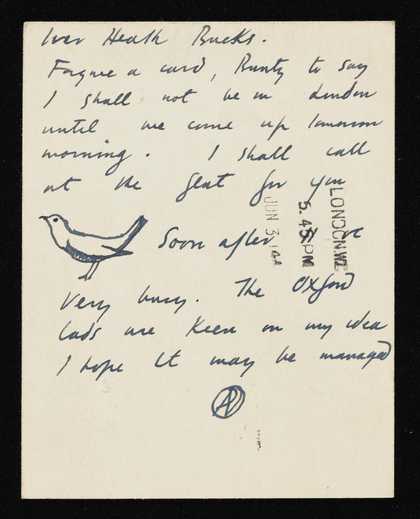 Iver Heath Bucks.
Forgive a card, Runty to say
I shall not be in London
until we come up tomorrow
morning. I shall call
at the flat for you
Soon after
Very busy. The Oxford
lads are keen on my idea
I hope it may be managed
JUN 3
5.45 PM
LONDON.W.2